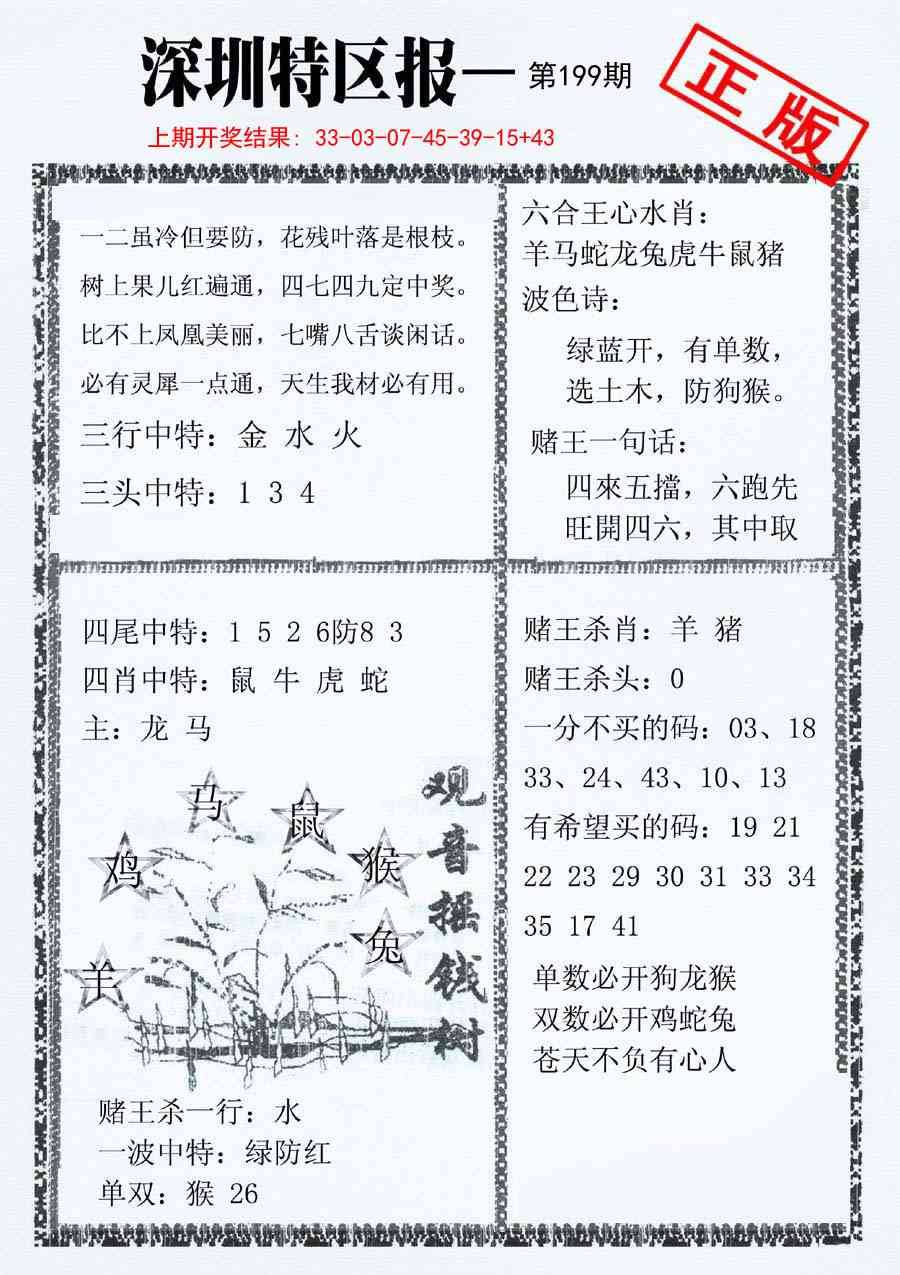 深圳特区报— 第199期
正版
上期开奖结果: 33-03-07-45-39-15+43
一二虽冷但要防，花残叶落是根枝。
树上果儿红遍通，四七四九定中奖。
比不上凤凰美丽，七嘴八舌谈闲话。
必有灵犀一点通，天生我材必有用。
三行中特：金 水 火
三头中特：1 3 4
六合王心水肖：
羊马蛇龙兔虎牛鼠猪
波色诗：
绿蓝开，有单数，
选土木，防狗猴。
赌王一句话：
四來五擋，六跑先
旺開四六，其中取
四尾中特：1 5 2 6防8 3
四肖中特：鼠 牛 虎 蛇
主：龙 马
马
鼠
鸡
猴
兔
羊
观音摇钱树
赌王杀一行：水
一波中特：绿防红
单双：猴 26
赌王杀肖：羊 猪
赌王杀头：0
一分不买的码：03、18
33、24、43、10、13
有希望买的码：19 21
22 23 29 30 31 33 34
35 17 41
单数必开狗龙猴
双数必开鸡蛇兔
苍天不负有心人